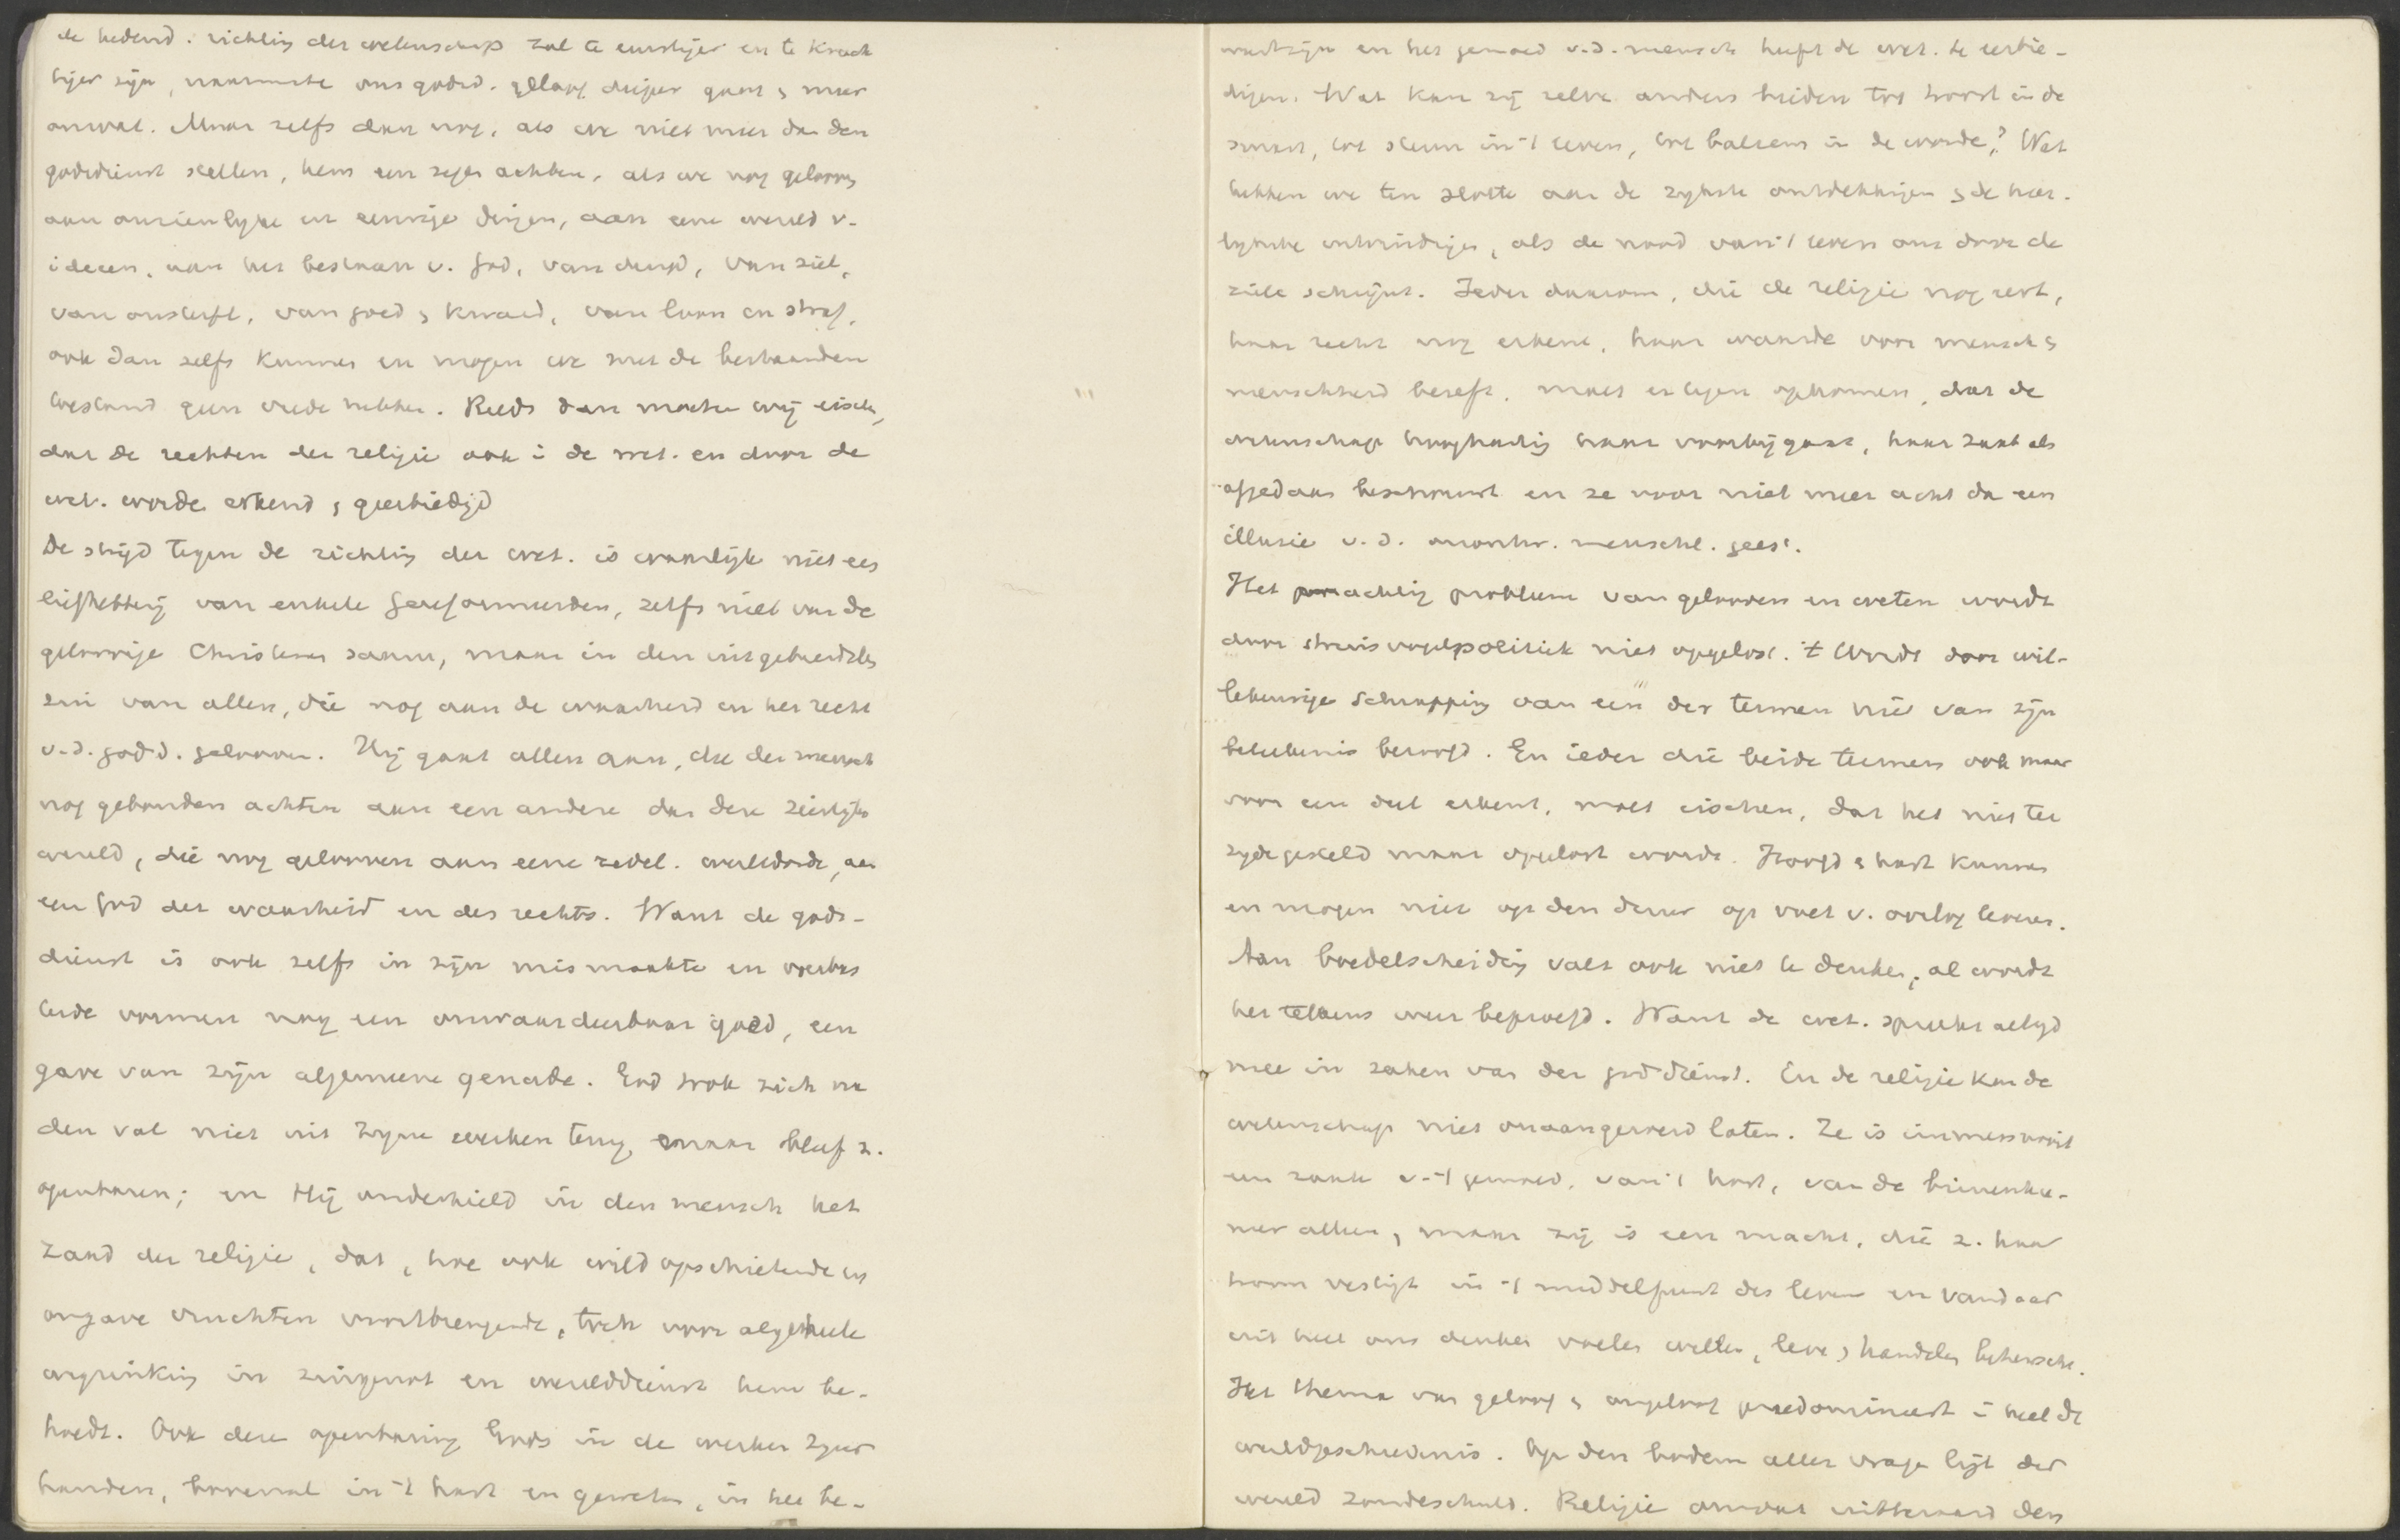 de hedend. richting der wetenschap zal te ernstiger en te krach
tiger zijn, naarmate ons godsd. geloof dieper gaat & meer
omvat. Maar zelfs dan nog, als we niet meer dan den
godsdienst stellen, hem een zegen achten, als we nog gelooven
aan onzienlyke en eeuwige dingen, aan eene wereld v.
ideeen, aan het bestaan v. God, van deugd, van ziel,
van onsterfl., van goed & kwaad, van loon en straf,
ook dan zelfs kunnen en mogen we met de bestaanden
toestand geen vrede hebben. Reeds dan moeten wij eischen,
dat de rechten der religie ook i de wet. en door de
wet. worde erkend & geerbiedigd
De strijd tegen de richting der wet. is waarlijk niet een
liefhebberij van enkele Gereformeerden, zelfs niet van de
geloovige Christenen samen, maar in den uitgebreidsten
zin van allen, die nog aan de waarheid en het recht
v.d. godsd. gelooven. Hij gaat allen aan, die den mensch
nog gebonden achten aan een andere dan deze zienlijke
wereld, die nog gelooven aan eene zedel. wereldorde, aan
een God der waarheid en des rechts. Want de gods-
dienst is ook zelfs in zijn mismaakte en verbas
terde vormen nog een onwaardeerbaar goed, een
gave van zijn algemeene genade. God trok zich na
den val niet uit zijne werken terug, maar bleef z.
openbaren; en Hij onderhield in den mensch het
zaad der religie, dat, hoe ook wild opschietende en
ongave vruchten voortbrengende, toch voor algeheele
wegzinking in zingenot en werelddienst hem be-
hoedt. Ook deze openbaring Gods in de werken Zijner
handen, bovenal in 't hart en geweten, in het be-
wustzijn en het gemoed v.d. mensch heeft de wet. te eerbie-
digen. Wat kan zij zelve anders bieden tot troost in de
smart, tot steun in 't leven, tot balsem in de wonde? Wat
hebben we ten slotte aan de rykste ontdekkingen & de heer-
lykste uitvindingen, als de nood van 't leven ons door de
ziele schrijnt. Ieder daarom, die de religie nog eert,
haar recht nog erkent, haar waarde voor mensch &
menschheid beseft, moet er tegen opkomen, dat de
wetenschap hooghartig haar voorbijgaat, haar zaak als
afgedaan beschouwt en ze voor niet meer acht dan een
illusie v.d. menschl. geest.
Het machtig probleem van gelooven en weten wordt
door struisvogelpolitiek niet opgelost. 't Wordt door wil-
lekeurige schrapping van een der termen niet van zijn
beteekenis beroofd. En ieder die beide termen ook maar
voor een deel erkent, moet eischen, dat het niet ter
zyde gesteld maar opgelost worde. Hoofd & hart kunnen
en mogen niet op den duur op voet v. oorlog leven.
Aan boedelscheiding valt ook niet te denken, al wordt
het telkens weer beproefd. Want de wet. spreekt altyd
mee in zaken van den godsdienst. En de religie kan de
wetenschap niet onaangeroerd laten. Ze is immers nooit
een zaak v. 't gemoed, van 't hart, van de binnenka-
mer alleen, maar zij is een macht, die z. haar
troon vestigt in 't middelpunt des levens en vandaar
uit heel ons denken voelen willen, leve & handelen beheersche.
Het thema van geloof & ongeloof predomineert i heel de
wereldgeschiedenis. Op den bodem aller vragen ligt der
wereld zondeschuld. Religie omvat uitteraard den